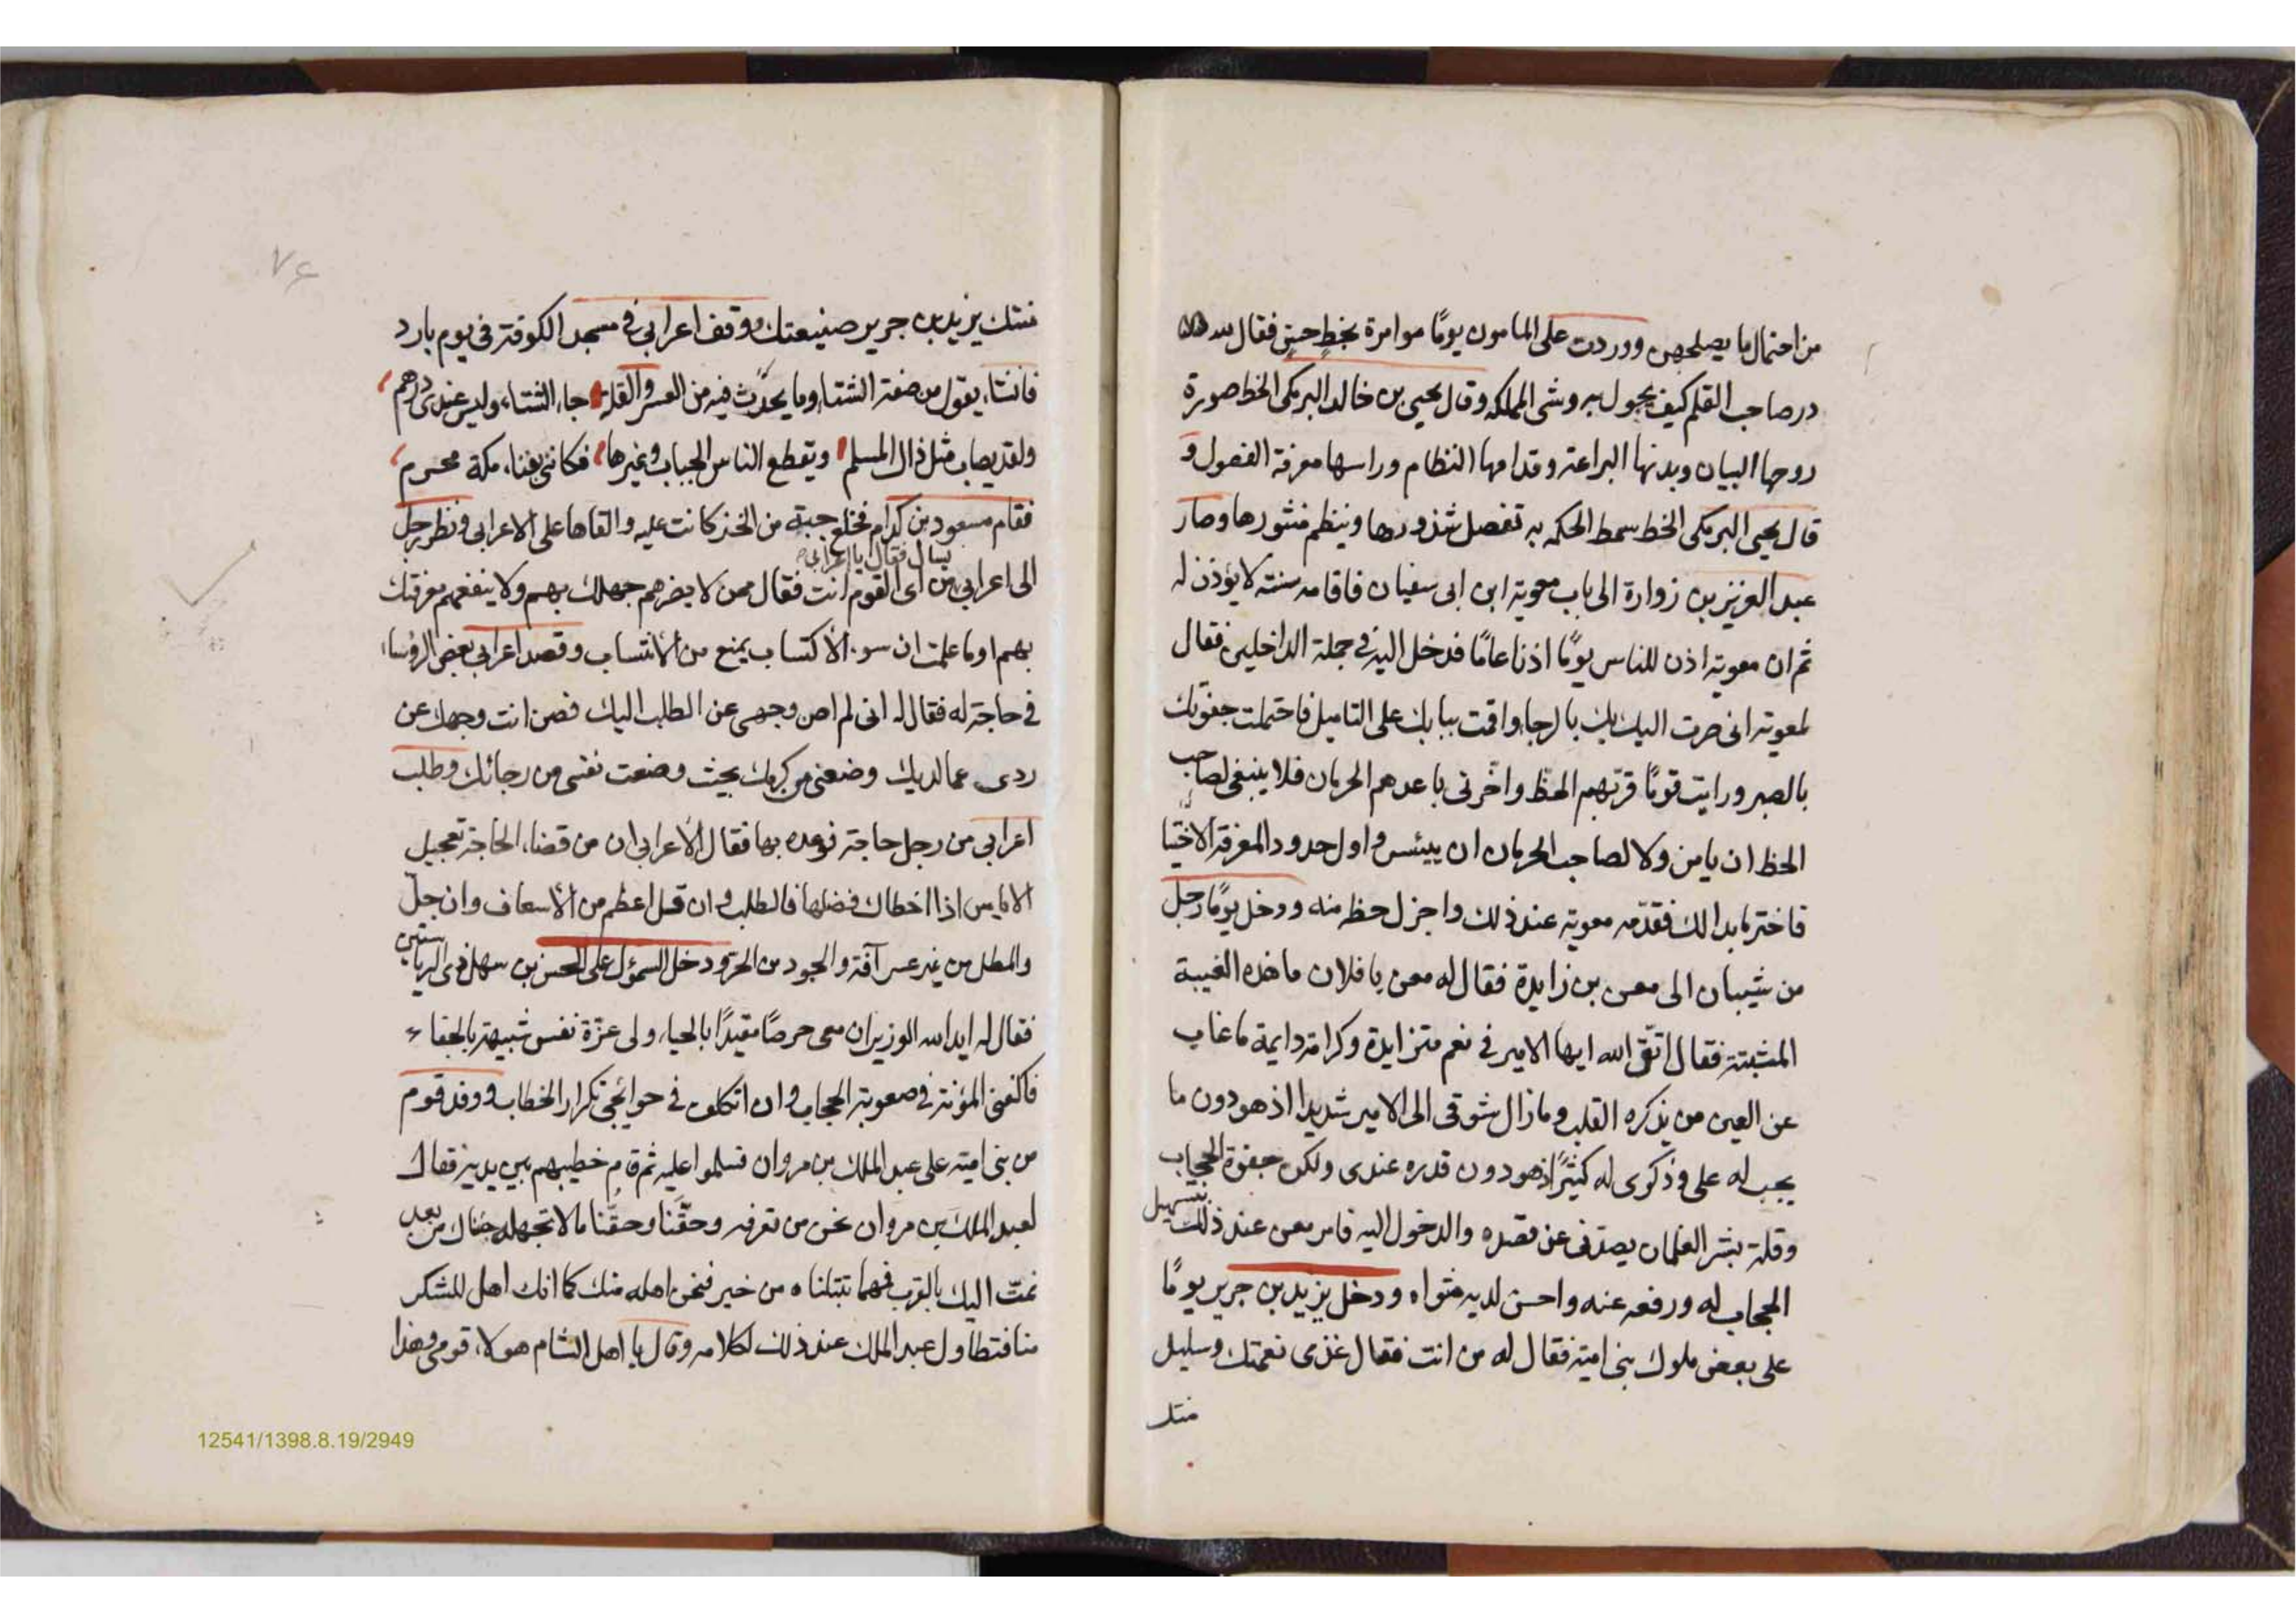 من احتمال ما يصلحهن ووردت على المامون يومًا موامرة بخط حسن فقال لله
در صاحب القلم كيف يجول به وشى المملكه وقال يحيى بن خالد البرمكى الخط صورة
روحها البيان وبدنها البراعة وقدامها النظام وراسها معرفة الفصول و
قال يحيى البرمكى الخط سمط الحكمه به تفصل شذورها وينظم منثورها وصار
عبد العزيز بن زوارة الى باب معوية ابن ابى سفيان فاقامه سنته لا يؤذن له
ثم ان معوية اذن للناس يومًا اذنا عامًا فدخل اليه فى جملة الداخلين فقال
لمعوية انى صرت اليك بالرجا واقمت ببابك على التاميل فاحتملت جفوتك
بالصبر ورايت قومًا قرّبهم الحظ واخّرنى باعدهم الحرمان فلا ينبغى لصاحب
الحظ ان يامن ولا لصاحب الحرمان ان ييئس واول حدود المعرفة الاختيا
فاختر ما بدا لك فقدّمه معوية عند ذلك واجزل حظه منه ودخل يومًا رجل
من شيبان الى معن بن زايدة فقال له معن يا فلان ما هذه الغيبة
المشبتة فقال اتق الله ايها الامير فى نعم متزايدة وكرامة دايمة ما غاب
عن العين من يذكره القلب وما زال شوقى الى الامير شديدا اذ هو دون ما
يجب له على وذكرى له كثيرًا اذ هو دون قدره عندى ولكن جفوة الحجاب
وقلة بشر الغلمان يصدنى عن قصده والدخول اليه فامر معن عند ذلك بتسهيل
الحجاب له ورفعه عنه واحسن لديه مثواه ودخل يزيد بن جرير يومًا
على بعض ملوك بنى امية فقال له من انت فقال غذى نعمتك وسليل
منتك
٧٤
منتك يزيد بن جرير صنيعتك ووقف اعرابى فى مسجد الكوفة فى يوم بارد
فانشا، يقول من صفة الشتا، وما يحدّث فيه من العسر والقلة جا، الشتا، وليس عندى درهم
ولقد يصاب مثل ذاك المسلم ويقطع الناس الجباب وغيرها فكاننى بفنا، مكة محرم
فقام مسعود بن كدام فخلع جبة من الخز كانت عليه والقاها على الاعرابى ونظر رجل
يسال فقال يا اعرابى
الى اعرابى من اى القوم انت فقال ممن لا يضرهم جهلك بهم ولا ينفعهم معرفتك
بهم اوما علمت ان سو، الاكتساب يمنع من الانتساب وقصد اعرابى بعض الرؤسا،
فى حاجة له فقال له انى لم اصن وجهى عن الطلب اليك فصن انت وجهك عن
ردى عما لديك وضعنى من كرمك بحيث وضعت نفسى من رجائك وطلب
اعرابى من رجل حاجة فوعده بها فقال الاعرابى ان من قضا، الحاجة تعجيل
الاياس اذا اخطاك فضلها فالطلب وان قل اعظم من الاسعاف وان جلّ
والمطل من غير عسر آفة والجود من الحر ودخل السمؤل على الحسن بن سهل ذى الرياستين
فقال له ايد الله الوزير ان معى حرصًا مقيدًا بالحيا، ولى عزّة نفس شبيهة بالجفا،
فاكفنى المؤنة فى صعوبة الحجاب وان اتكلف فى حوائجى تكرار الخطاب ووفد قوم
من بنى امية على عبد الملك بن مروان فسلموا عليه ثم قام خطيبهم بين يديه فقال
لعبد الملك بن مروان نحن من تعرفه وحقّنا وحقّنا ما لا تجهله جئناك من بعد
نمتّ اليك بالقرب فهما تبتلناه من خير فنحن اهله منك كما انك اهل للشكر
منا فتطاول عبد الملك عند ذلك لكلامه وقال يا اهل الشام هولا، قومى وهذا
12541/1398.8.19/2949